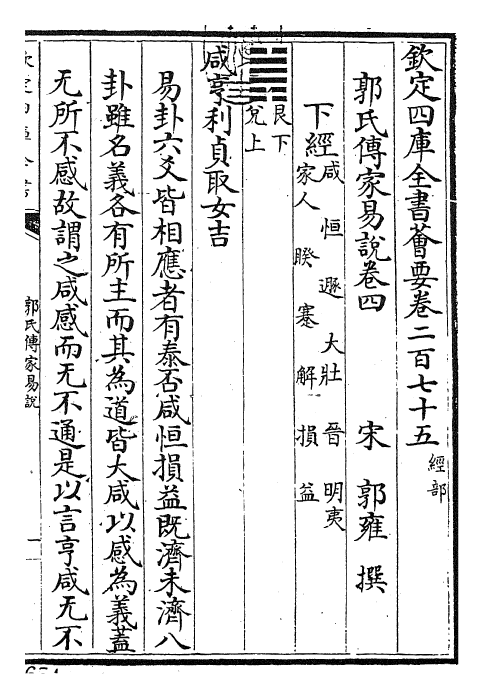 欽定四庫全書薈要卷二百七十五 經部
郭氏傳家易說卷四 宋 郭雍 撰
下經 咸 恒 遯 大壯 晉 明夷
家人 睽 蹇 解 損 益
艮下
兌上
咸亨利貞取女吉
易卦六爻皆相應者有泰否咸恒損益既濟未濟八
卦雖名義各有所主而其為道皆大咸以感為義蓋
无所不感故謂之咸感而无不通是以言亨咸无不
郭氏傳家易說
一